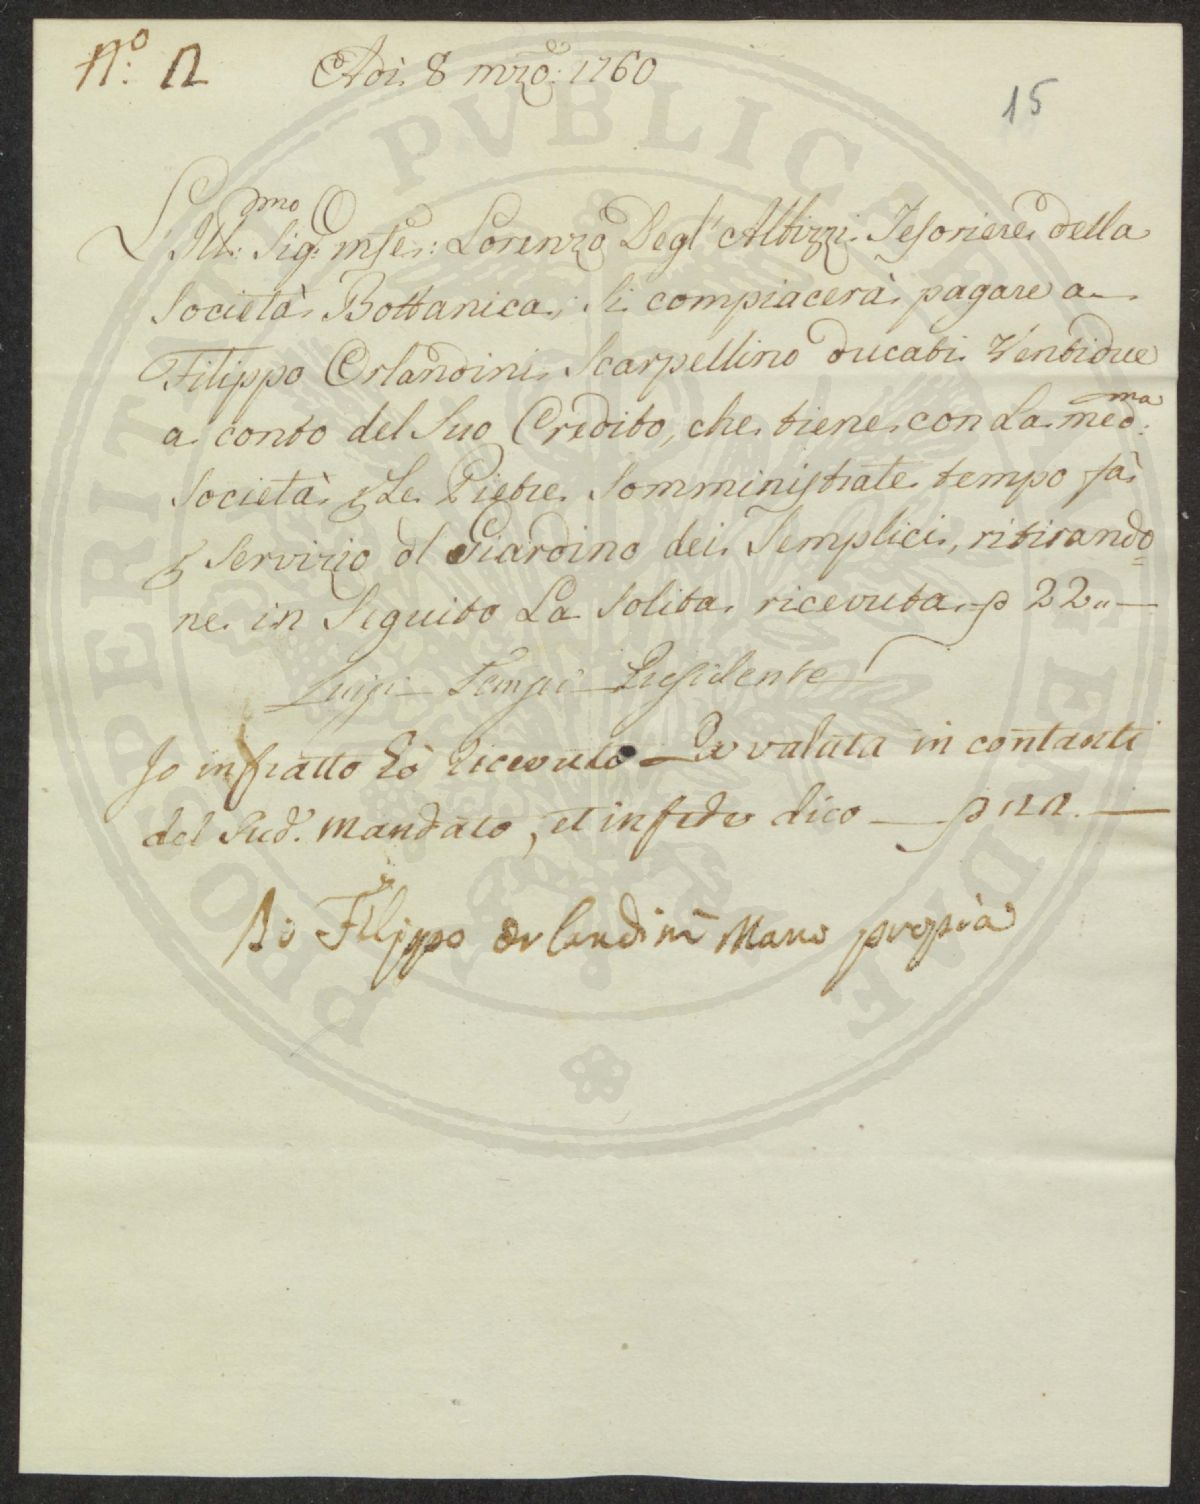 N.º 2 Adì 8 mrzo: 1760
15
L'Ill:mo Sig: mse: Lorenzo Degl' Albizzi Tesoriere della
Società Bottanica, si compiacerà pagare a
Filippo Orlandini Scarpellino ducati Ventidue
a conto del suo Credito, che tiene con La med:ma
Società p Le Pietre somministrate tempo fà
p servizio dl Giardino dei Semplici, ritirando=
ne in seguito La solita ricevuta p 22"—
Luigi Tempi Presidente
Io infratto hò ricevuto La valuta in contanti
del Sud.º mandato, et in fede dico — p 22. —
Io Filippo Orlandini Mano propia
PROSPERITATI PVBLICAE AVGENDAE